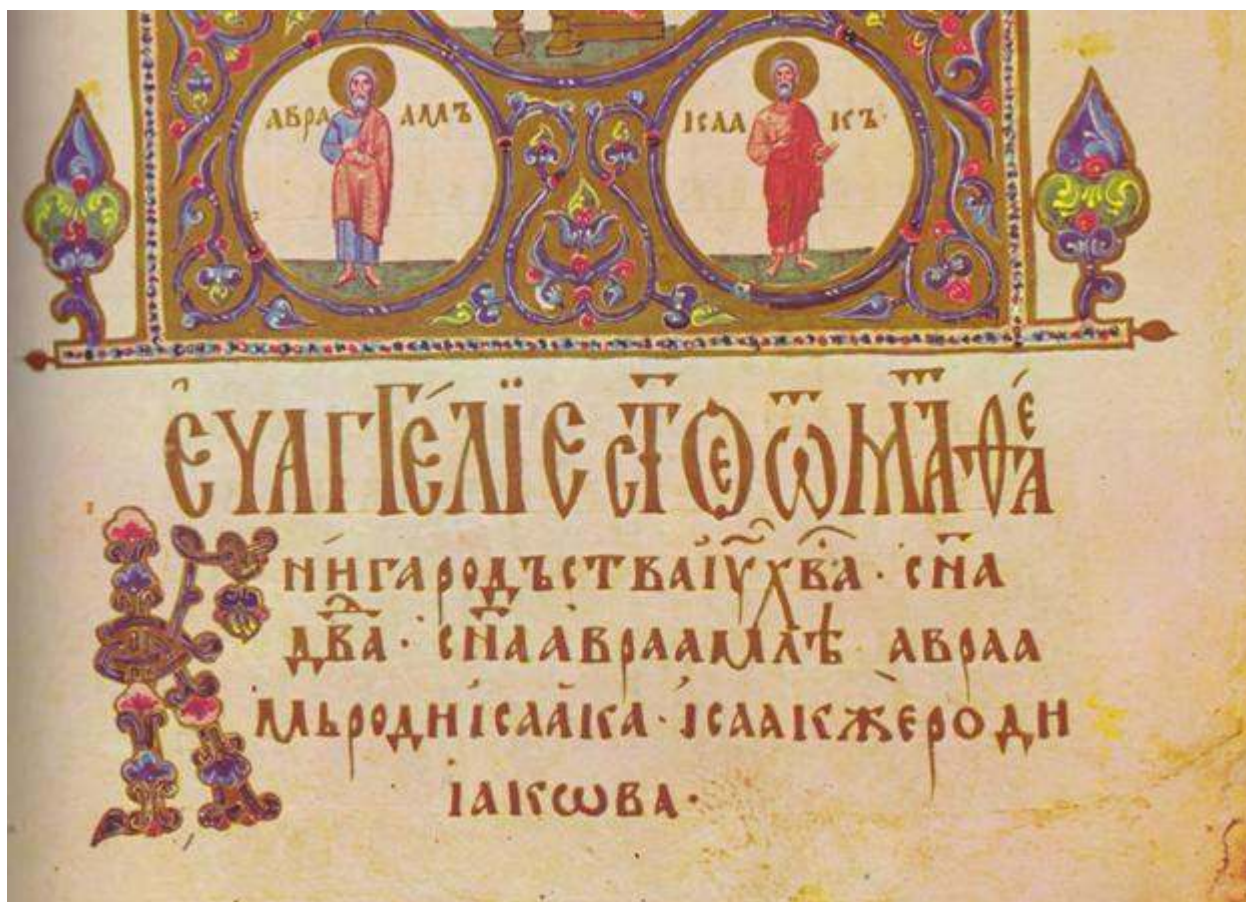 АВРААМЪ ІСААКЪ·
ЄУАГГЕ́ЛЇЕ СТ҃ОЕ Ѿ МАТѲЕ́А
КНИ́ГА РОДЪСТВА І҆У҃ Х҃ВА · СН҃А
ДВ҃А · СН҃А АВРААМЛѢ · АВРАА
МЬ РОДИ ІСААКА · ІСААК ЖЕ РОДИ
ІАКѠВА ·